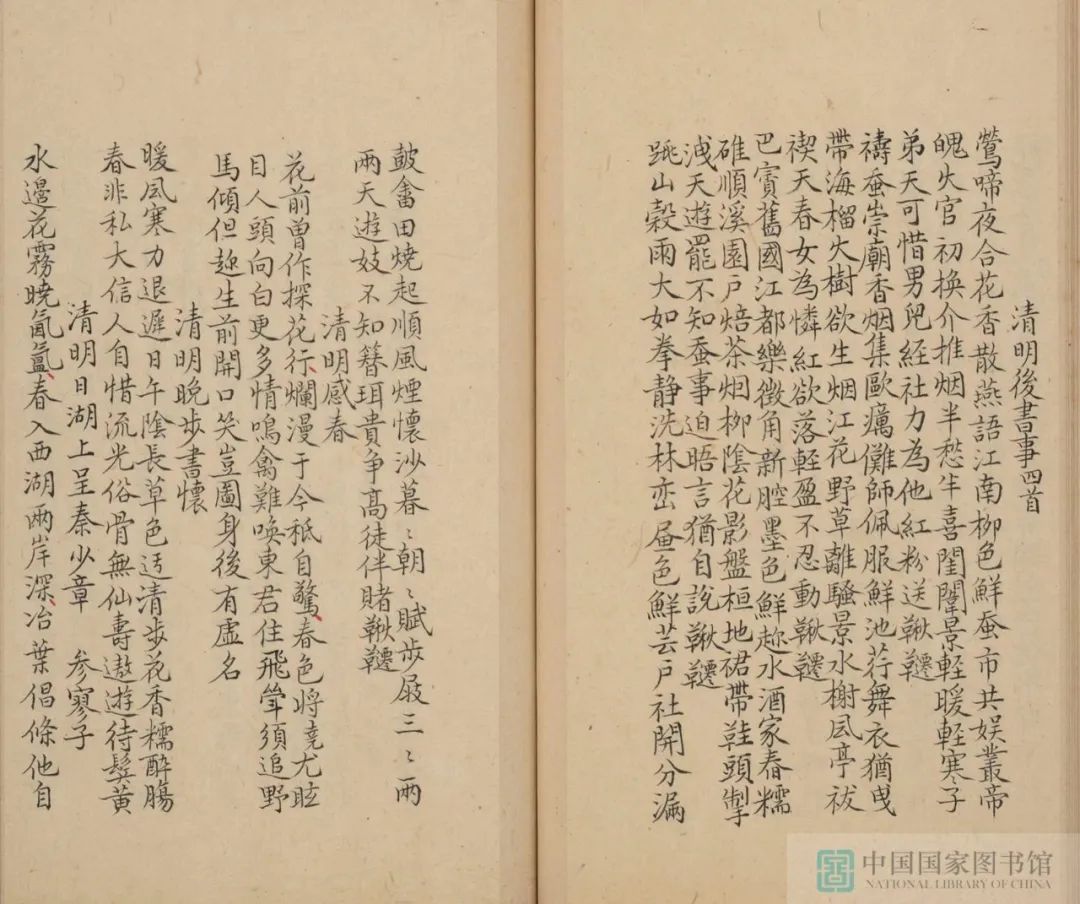 清明後書事四首
鶯啼夜合花香散燕語江南柳色鮮蚕市共娱叢帝
魄火官初换介推烟半愁半喜閨闈景輕暖輕寒子
弟天可惜男兒経社力為他紅粉送鞦韆
禱蚕崇廟香烟集歐癘儺師佩服鮮池荇舞衣猶曵
帶海榴火樹欲生烟江花野草離騷景水榭風亭祓
禊天春女為憐紅欲落軽盈不忍動鞦韆
巴賨舊國江都樂徵角新腔墨色鮮趂水酒家春糯
碓順溪園戸焙茶烟柳陰花影盤桓地裙帶鞋頭掣
洩天遊罷不知蚕事迫晤言猶自說鞦韆
跳山榖雨大如拳静洗林峦昼色鮮芸戸社開分漏
鼓畬田燒起順風煙懷沙暮〻朝〻賦步屐三〻兩
兩天遊妓不知簪珥貴争髙徒伴賭鞦韆
清明感春
花前曾作探花行爛漫于今秪自驚春色將堯尤眩
目人頭向白更多情鳴禽難唤東君住飛鞚須追野
馬傾但趂生前開口笑豈圖身後有虚名
清明晩步書懷
暖風寒力退遲日午陰長草色迃清步花香糯醉腸
春非私大信人自惜流光俗骨無仙壽遨遊待鬂黄
清明日湖上呈秦少章 参寥子
水邉花霧曉氤氲春入西湖兩岸深冶葉倡條他自
中国国家图书馆
NATIONAL LIBRARY OF CHINA